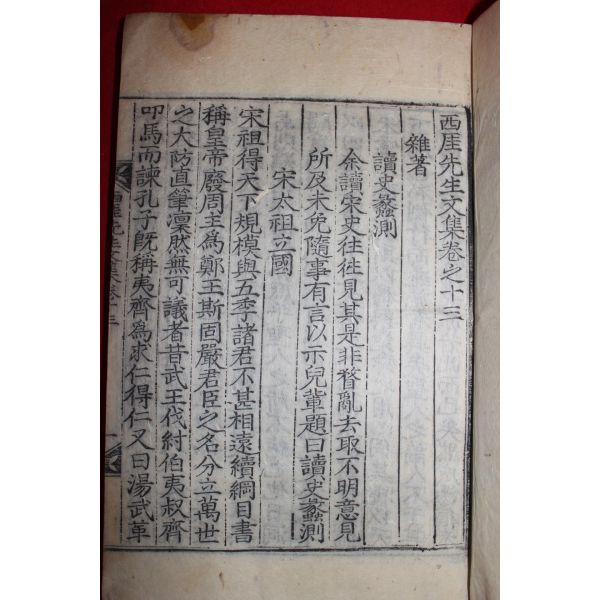 西厓先生文集卷之十三
雜著
讀史蠡測
余讀宋史往往見其是非瞀亂去取不明意見
所及未免隨事有言以示兒輩題曰讀史蠡測
宋太祖立國
宋祖得天下規模與五季諸君不甚相遠續綱目書
稱皇帝廢周主爲鄭王斯固嚴君臣之名分立萬世
之大防直筆凜然無可議者昔武王伐紂伯夷叔齊
叩馬而諫孔子旣稱夷齊爲求仁得仁又曰湯武革
西厓先生文集卷十三